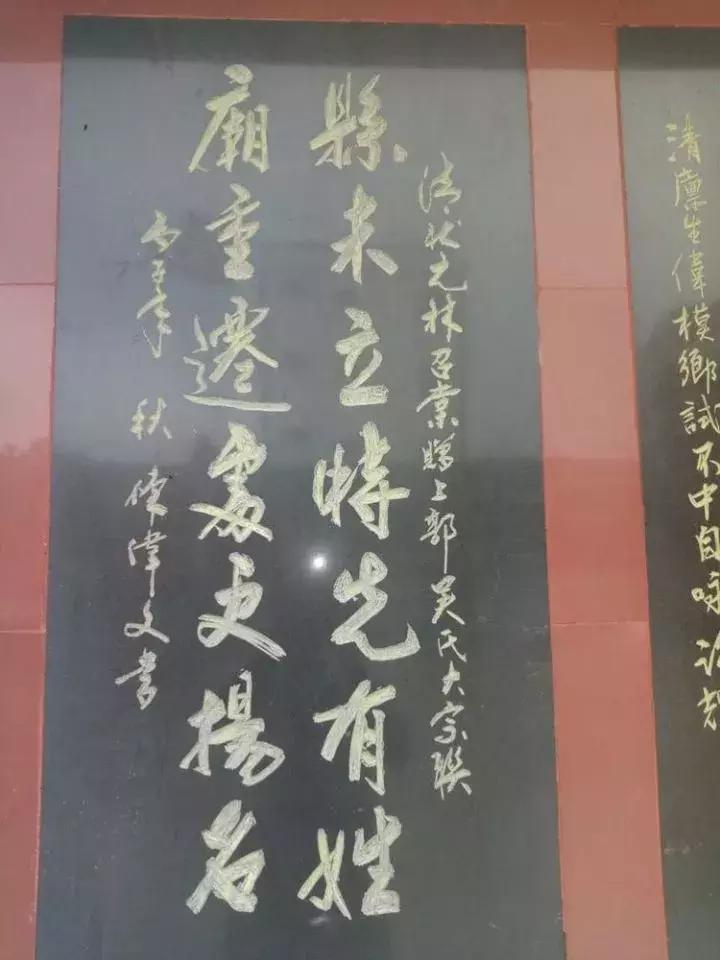 清廪生偉模鄉試不中自咏
清状元林召棠赠上郭吴氏大宗联
縣未立時先有姓
廟重遷處更揚名
年 秋 陳偉文书